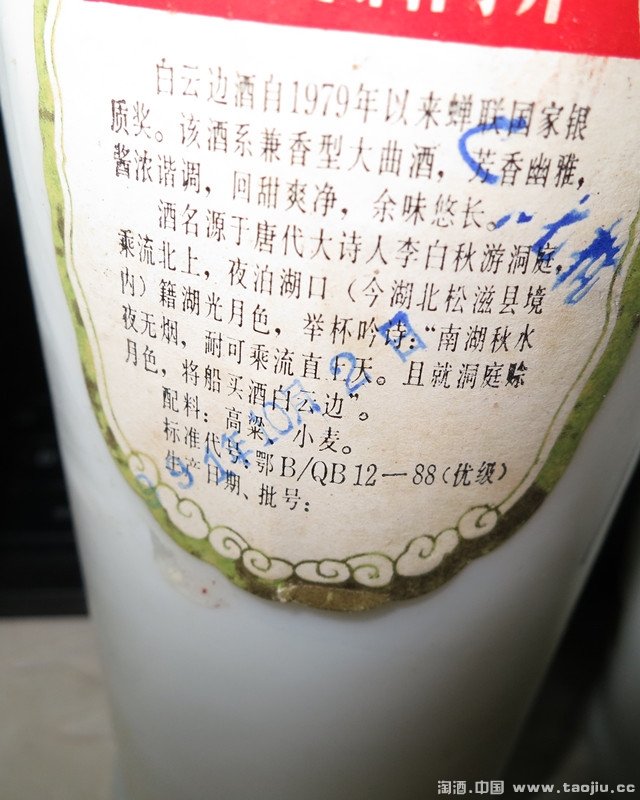 白云边酒自1979年以来蝉联国家银
质奖。该酒系兼香型大曲酒，芳香幽雅，
酱浓谐调，回甜爽净，余味悠长。
酒名源于唐代大诗人李白秋游洞庭，
乘流北上，夜泊湖口（今湖北松滋县境
内）籍湖光月色，举杯吟诗：“南湖秋水
夜无烟，耐可乘流直上天。且就洞庭赊
月色，将船买酒白云边”。
配料：高粱、小麦。
标准代号：鄂B/QB12—88（优级）
生产日期、批号：
91年10月2日
淘酒.中国 www.taojiu.cc